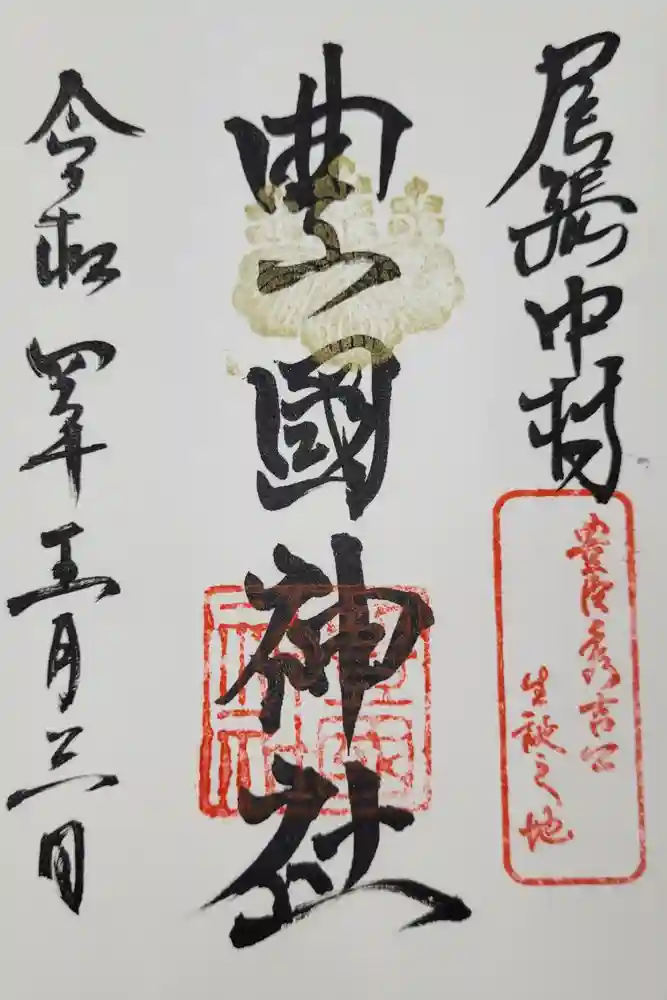 尾張中村
豊臣秀吉公
生誕之地
豊國神社
令和四年五月三日